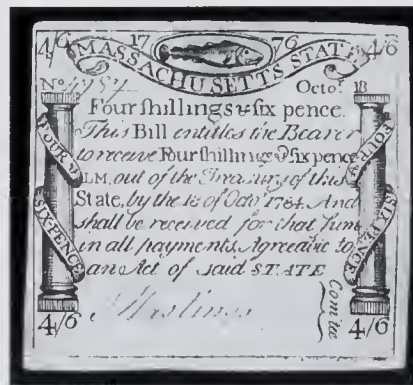 4/6 17 76 4/6
MASSACHUSETTS STATE
No Octor. 18
Four shillings & six pence.
This Bill entitles the Bearer
to receive Four shillings & six pence
LM. out of the Treasury of this
State, by the 18 of Octo 1784. And
shall be received for that Sum
in all payments, Agreeable to
an Act of said STATE
FOUR &
SIX-PENCE
FOUR &
SIX PENCE
Comtee
4/6 4/6